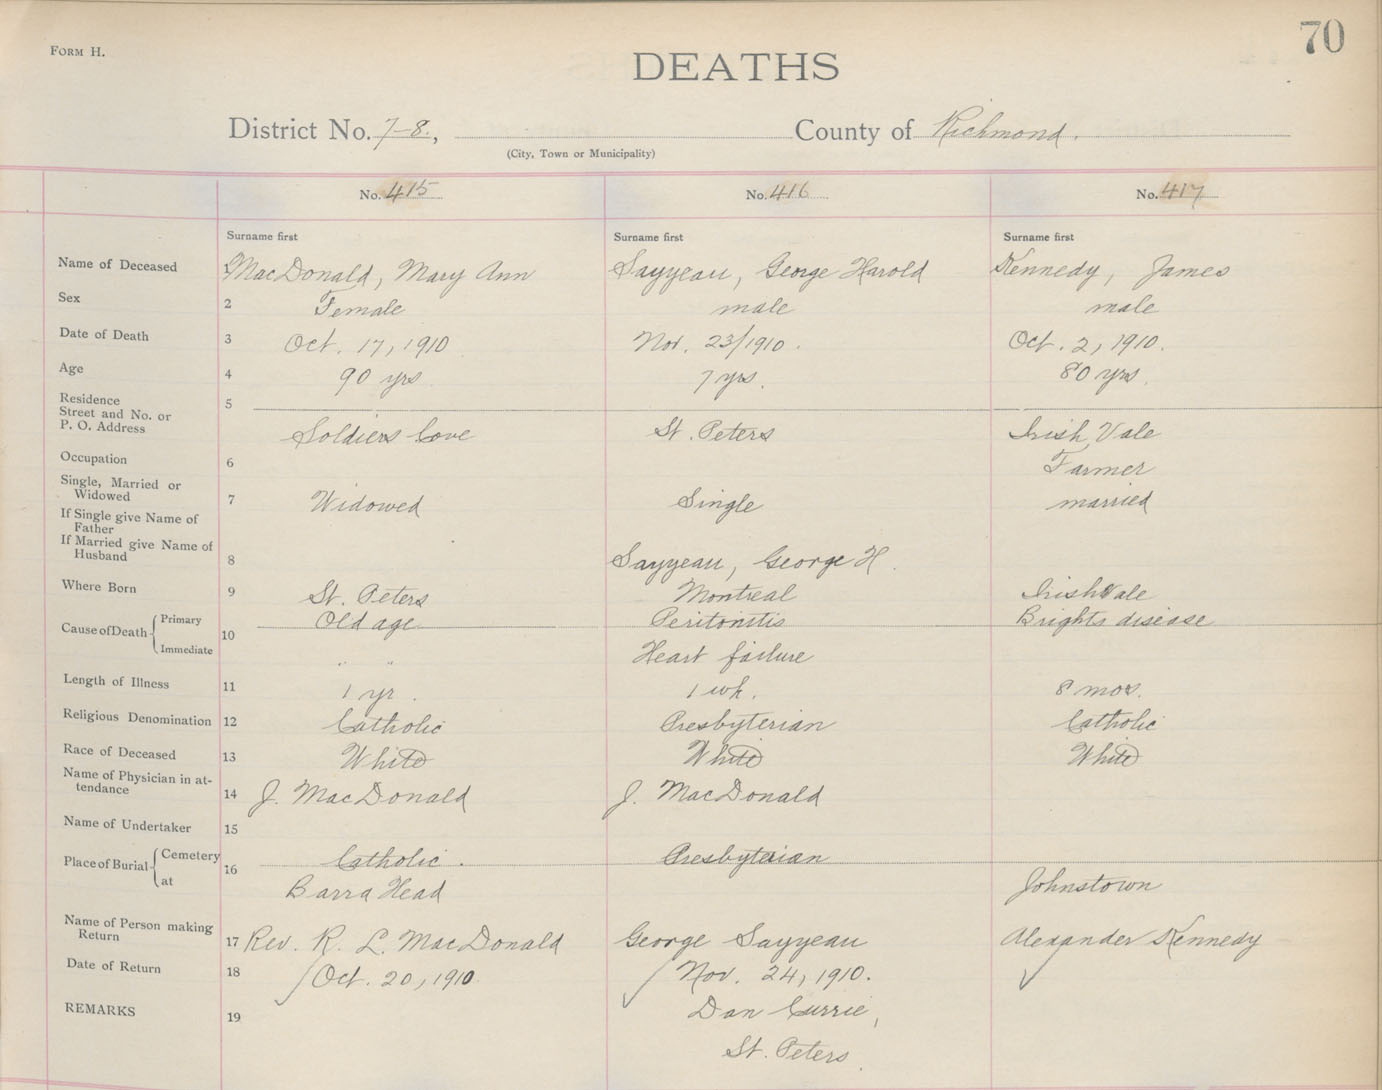 70
FORM H.
DEATHS
District No. 7-8., County of Richmond.
(City, Town or Municipality)
No. 415 No. 416 No. 417
Surname first Surname first Surname first
Name of Deceased MacDonald, Mary Ann Sayyeau, George Harold Kennedy, James
Sex 2 Female male male
Date of Death 3 Oct. 17, 1910 Nov. 23/1910. Oct. 2, 1910.
Age 4 90 yrs 7 yrs. 80 yrs.
Residence 5
Street and No. or
P. O. Address Soldiers Cove St. Peters Irish Vale
Occupation 6 Farmer
Single, Married or
Widowed 7 Widowed Single married
If Single give Name of
Father
If Married give Name of
Husband 8 Sayyeau, George H.
Where Born 9 St. Peters Montreal Irish Vale
Cause of Death Primary 10 Old age Peritonitis Brights disease
Immediate " " Heart failure
Length of Illness 11 1 yr. 1 wk. 8 mos.
Religious Denomination 12 Catholic Presbyterian Catholic
Race of Deceased 13 White White White
Name of Physician in at-
tendance 14 J. MacDonald J. MacDonald
Name of Undertaker 15
Place of Burial Cemetery 16 Catholic. Presbyterian
at Barra Head Johnstown
Name of Person making
Return 17 Rev. R. L. MacDonald George Sayyeau Alexander Kennedy
Date of Return 18 Oct. 20, 1910 Nov. 24, 1910.
REMARKS 19 Dan Currie,
St. Peters.